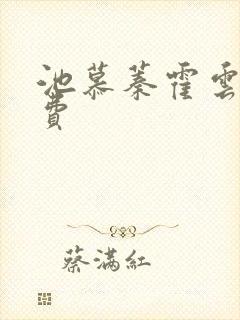 池慕蓁霍雲
費
蔡滿紅